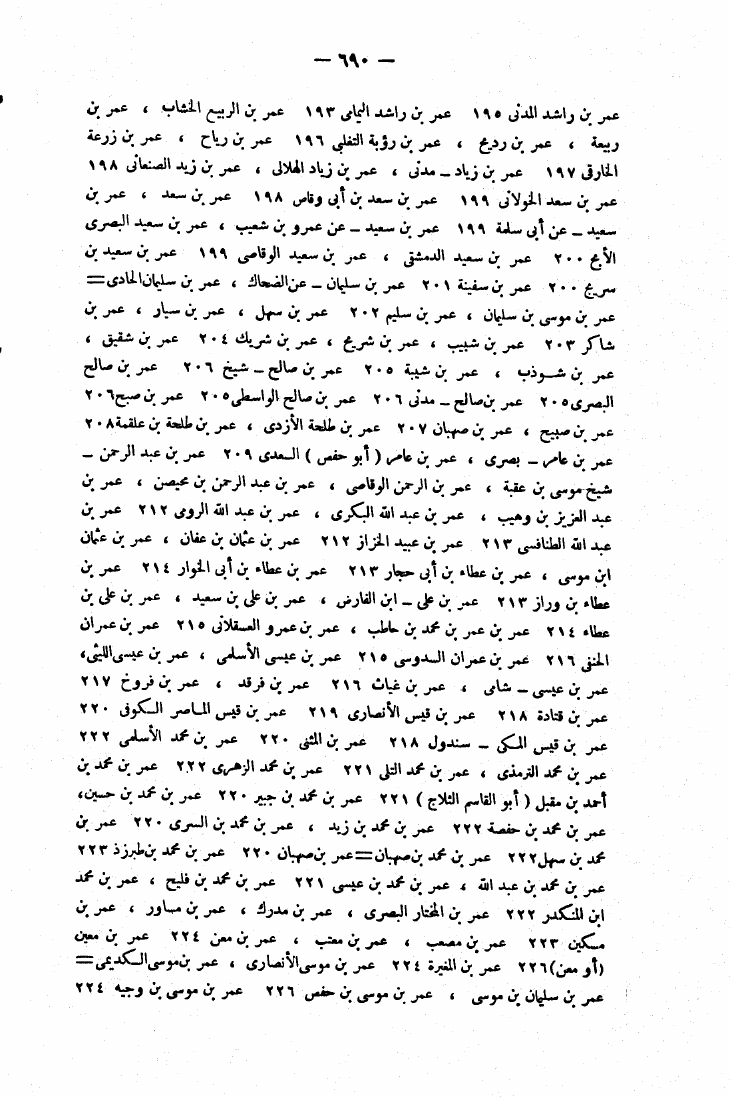 — ٦٩٠ —
عمر بن راشد المدنى ١٩٥ عمر بن راشد اليمامى ١٩٣ عمر بن الربيع الخشاب ، عمر بن
ربيعة ، عمر بن رديح ، عمر بن رؤبة التغلبى ١٩٦ عمر بن رياح ، عمر بن زرعة
الخارفى ١٩٧ عمر بن زياد ــ مدنى ، عمر بن زياد الهلالى ، عمر بن زيد الصنعانى ١٩٨
عمر بن سعد الخولانى ١٩٩ عمر بن سعد بن أبى وقاص ١٩٨ عمر بن سعد ، عمر بن
سعيد ــ عن أبى سلمة ١٩٩ عمر بن سعيد ــ عن عمرو بن شعيب ، عمر بن سعيد البصرى
الأبح ٢٠٠ عمر بن سعيد الدمشقى ، عمر بن سعيد الوقاصى ١٩٩ عمر بن سعيد بن
سريج ٢٠٠ عمر بن سفينة ٢٠١ عمر بن سليمان ــ عن الضحاك ، عمر بن سليمان الحادى=
عمر بن موسى بن سليمان ، عمر بن سليم ٢٠٢ عمر بن سهل ، عمر بن سيار ، عمر بن
شاكر ٢٠٣ عمر بن شبيب ، عمر بن شريح ، عمر بن شريك ٢٠٤ عمر بن شقيق ،
عمر بن شوذب ، عمر بن شيبة ٢٠٥ عمر بن صالح ــ شيخ ٢٠٦ عمر بن صالح
البصرى ٢٠٥ عمر بن صالح ــ مدنى ٢٠٦ عمر بن صالح الواسطى ٢٠٥ عمر بن صبح ٢٠٦
عمر بن صبيح ، عمر بن صهبان ٢٠٧ عمر بن طلحة الأزدى ، عمر بن طلحة بن علقمة ٢٠٨
عمر بن عامر ــ بصرى ، عمر بن عامر ( أبو حفص ) السعدى ٢٠٩ عمر بن عبد الرحمن ــ
شيخ موسى بن عقبة ، عمر بن الرحمن الوقاصى ، عمر بن عبد الرحمن بن محيصن ، عمر بن
عبد العزيز بن وهيب ، عمر بن عبد الله البكرى ، عمر بن عبد الله الرومى ٢١٢ عمر بن
عبد الله الطنافسى ٢١٣ عمر بن عبيد الخزاز ٢١٢ عمر بن عثمان بن عفان ، عمر بن عثمان
ابن موسى ، عمر بن عطاء بن أبى حجار ٢١٣ عمر بن عطاء بن أبى الخوار ٢١٤ عمر بن
عطاء بن وراز ٢١٣ عمر بن على ــ ابن الفارض ، عمر بن على بن سعيد ، عمر بن على بن
عطاء ٢١٤ عمر بن عمر بن محمد بن حاطب ، عمر بن عمرو العسقلانى ٢١٥ عمر بن عمران
الحنفى ٢١٦ عمر بن عمران السدوسى ٢١٥ عمر بن عيسى الأسلمى ، عمر بن عيسى الليثى،
عمر بن عيسى ــ شامى ، عمر بن غياث ٢١٦ عمر بن فرقد ، عمر بن فروخ ٢١٧
عمر بن قتادة ٢١٨ عمر بن قيس الأنصارى ٢١٩ عمر بن قيس الماصر الكوفى ٢٢٠
عمر بن قيس المكى ــ سندول ٢١٨ عمر بن المثنى ٢٢٠ عمر بن محمد الأسلمى ٢٢٢
عمر بن محمد الترمذى ، عمر بن محمد التلى ٢٢١ عمر بن محمد الزهرى ٢٢٢ عمر بن محمد بن
أحمد بن مقبل ( أبو القاسم الثلاج ) ٢٢١ عمر بن محمد بن جبير ٢٢٠ عمر بن محمد بن حسين،
عمر بن محمد بن حفصة ٢٢٢ عمر بن محمد بن زيد ، عمر بن محمد بن السرى ٢٢٠ عمر بن
محمد بن سهل ٢٢٢ عمر بن محمد بن صهبان=عمر بن صهبان ٢٢٠ عمر بن محمد بن طبرزذ ٢٢٣
عمر بن محمد بن عبد الله ، عمر بن محمد بن عيسى ٢٢١ عمر بن محمد بن فليح ، عمر بن محمد
ابن المنكدر ٢٢٢ عمر بن المختار البصرى ، عمر بن مدرك ، عمر بن مساور ، عمر بن
مسكين ٢٢٣ عمر بن مصعب ، عمر بن معتب ، عمر بن معن ٢٢٤ عمر بن معين
(أو معن) ٢٢٦ عمر بن المغيرة ٢٢٤ عمر بن موسى الأنصارى ، عمر بن موسى الكديمى=
عمر بن سليمان بن موسى ، عمر بن موسى بن حفص ٢٢٦ عمر بن موسى بن وجيه ٢٢٤